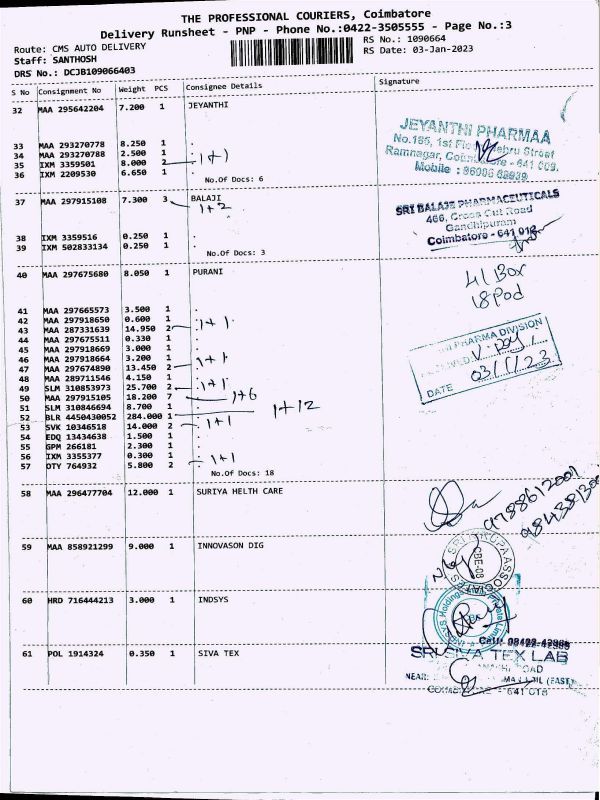 THE PROFESSIONAL COURIERS, Coimbatore
Delivery Runsheet - PNP - Phone No.:0422-3505555 - Page No.:3
Route: CMS AUTO DELIVERY
Staff: SANTHOSH
DRS No.: DCJB109066403
RS No.: 1090664
RS Date: 03-Jan-2023
S No Consignment No Weight PCS Consignee Details Signature
32 MAA 295642204 7.200 1 JEYANTHI
33 MAA 293270778 8.250 1 .
34 MAA 293270788 2.500 1 .
35 IXM 3359501 8.000 2 . 1+1
36 IXM 2209530 6.650 1 .
No.Of Docs: 6
JEYANTHI PHARMAA
No.165, 1st Floor, Nehru Street
Ramnagar, Coimbatore - 641 009.
Mobile :
37 MAA 297915108 7.300 3 BALAJI
1+2
38 IXM 3359516 0.250 1 .
39 IXM 502833134 0.250 1 .
No.Of Docs: 3
SRI BALAJE PHARMACEUTICALS
466, Cross Cut Road
Gandhipuram
Coimbatore - 641 012
40 MAA 297675680 8.050 1 PURANI
41 MAA 297665573 3.500 1 .
42 MAA 297918650 0.600 1 .
43 MAA 287331639 14.950 2 . 1+1
44 MAA 297675511 0.330 1 .
45 MAA 297918669 3.000 1 .
46 MAA 297918664 3.200 1 .
47 MAA 297674890 13.450 2 . 1+1
48 MAA 289711546 4.150 1 .
49 SLM 310853973 25.700 2 . 1+1
50 MAA 297915105 18.200 7 . 1+6
51 SLM 310846694 8.700 1 .
52 BLR 4450430052 284.000 1 . 1+12
53 SVK 10346518 14.000 2 . 1+1
54 EDQ 13434638 1.500 1 .
55 GPM 266181 2.300 1 .
56 IXM 3355377 0.300 1 .
57 OTY 764932 5.800 2 . 1+1
No.Of Docs: 18
41 Box
18 Pod
PHARMA DIVISION
DATE 03/1/23
58 MAA 296477704 12.000 1 SURIYA HELTH CARE
9788612001
59 MAA 858921299 9.000 1 INNOVASON DIG
CBE-08
60 HRD 716444213 3.000 1 INDSYS
61 POL 1914324 0.350 1 SIVA TEX
SRI SIVA TEX LAB
ROAD
NEAR:
(EAST)
- 641 018